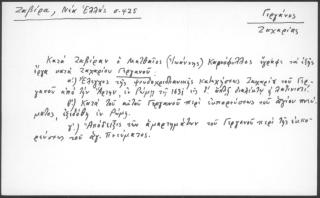 Ζαβίρα, Νέα Ἑλλάς σ. 425
Γεργάνος
Ζαχαρίας
Κατά Ζαβίραν ὁ Ματθαῖος (Ἰωάννης) Καρυόφυλλος ἔγραψε τά ἑξῆς
ἔργα κατά Ζαχαρίου Γεργάνου:
α΄) Ἔλεγχος τῆς ψευδοχριστιανικῆς κατηχήσεως Ζαχαρίου τοῦ Γερ-
γάνου ἀπό τήν Ἄρτην, ἐν Ῥώμῃ τῇ 1631
β΄) Κατά τοῦ αὐτοῦ Γεργάνου περί ἐκπορεύσεως τοῦ ἁγίου πνεύ-
ματος, ἐξεδόθη ἐν Ῥώμῃ.
γ΄) Ἀπόδειξις τῶν ἁμαρτημάτων τοῦ Γεργάνου περί τῆς ἐκπο-
ρεύσεως τοῦ ἁγ. Πνεύματος.